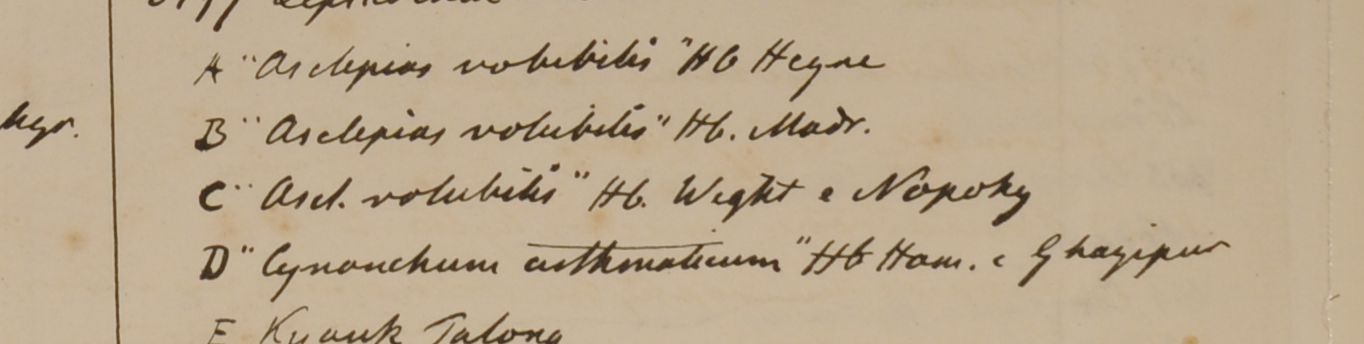 A "Asclepias volubilis" Hb Heyne
B "Asclepias volubilis" Hb. Madr.
C "Ascl. volubilis" Hb. Wight e Nopoky
D "Cynanchum asthmaticum" Hb Ham. e Ghazipur
E Kyouk Talong